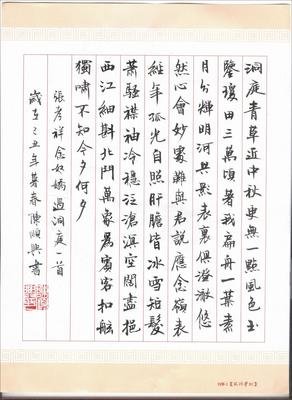 洞庭青草近中秋更無一點風色玉
鑒瓊田三萬頃著我扁舟一葉素
月分輝明河共影表裏俱澄澈悠
然心會妙處難與君說應念嶺表
經年孤光自照肝膽皆冰雪短髮
蕭騷襟袖冷穩泛滄溟空闊盡挹
西江細斟北斗萬象為賓客扣舷
獨嘯不知今夕何夕
張孝祥念奴嬌過洞庭一首
歲在己丑年暮春陳順興書